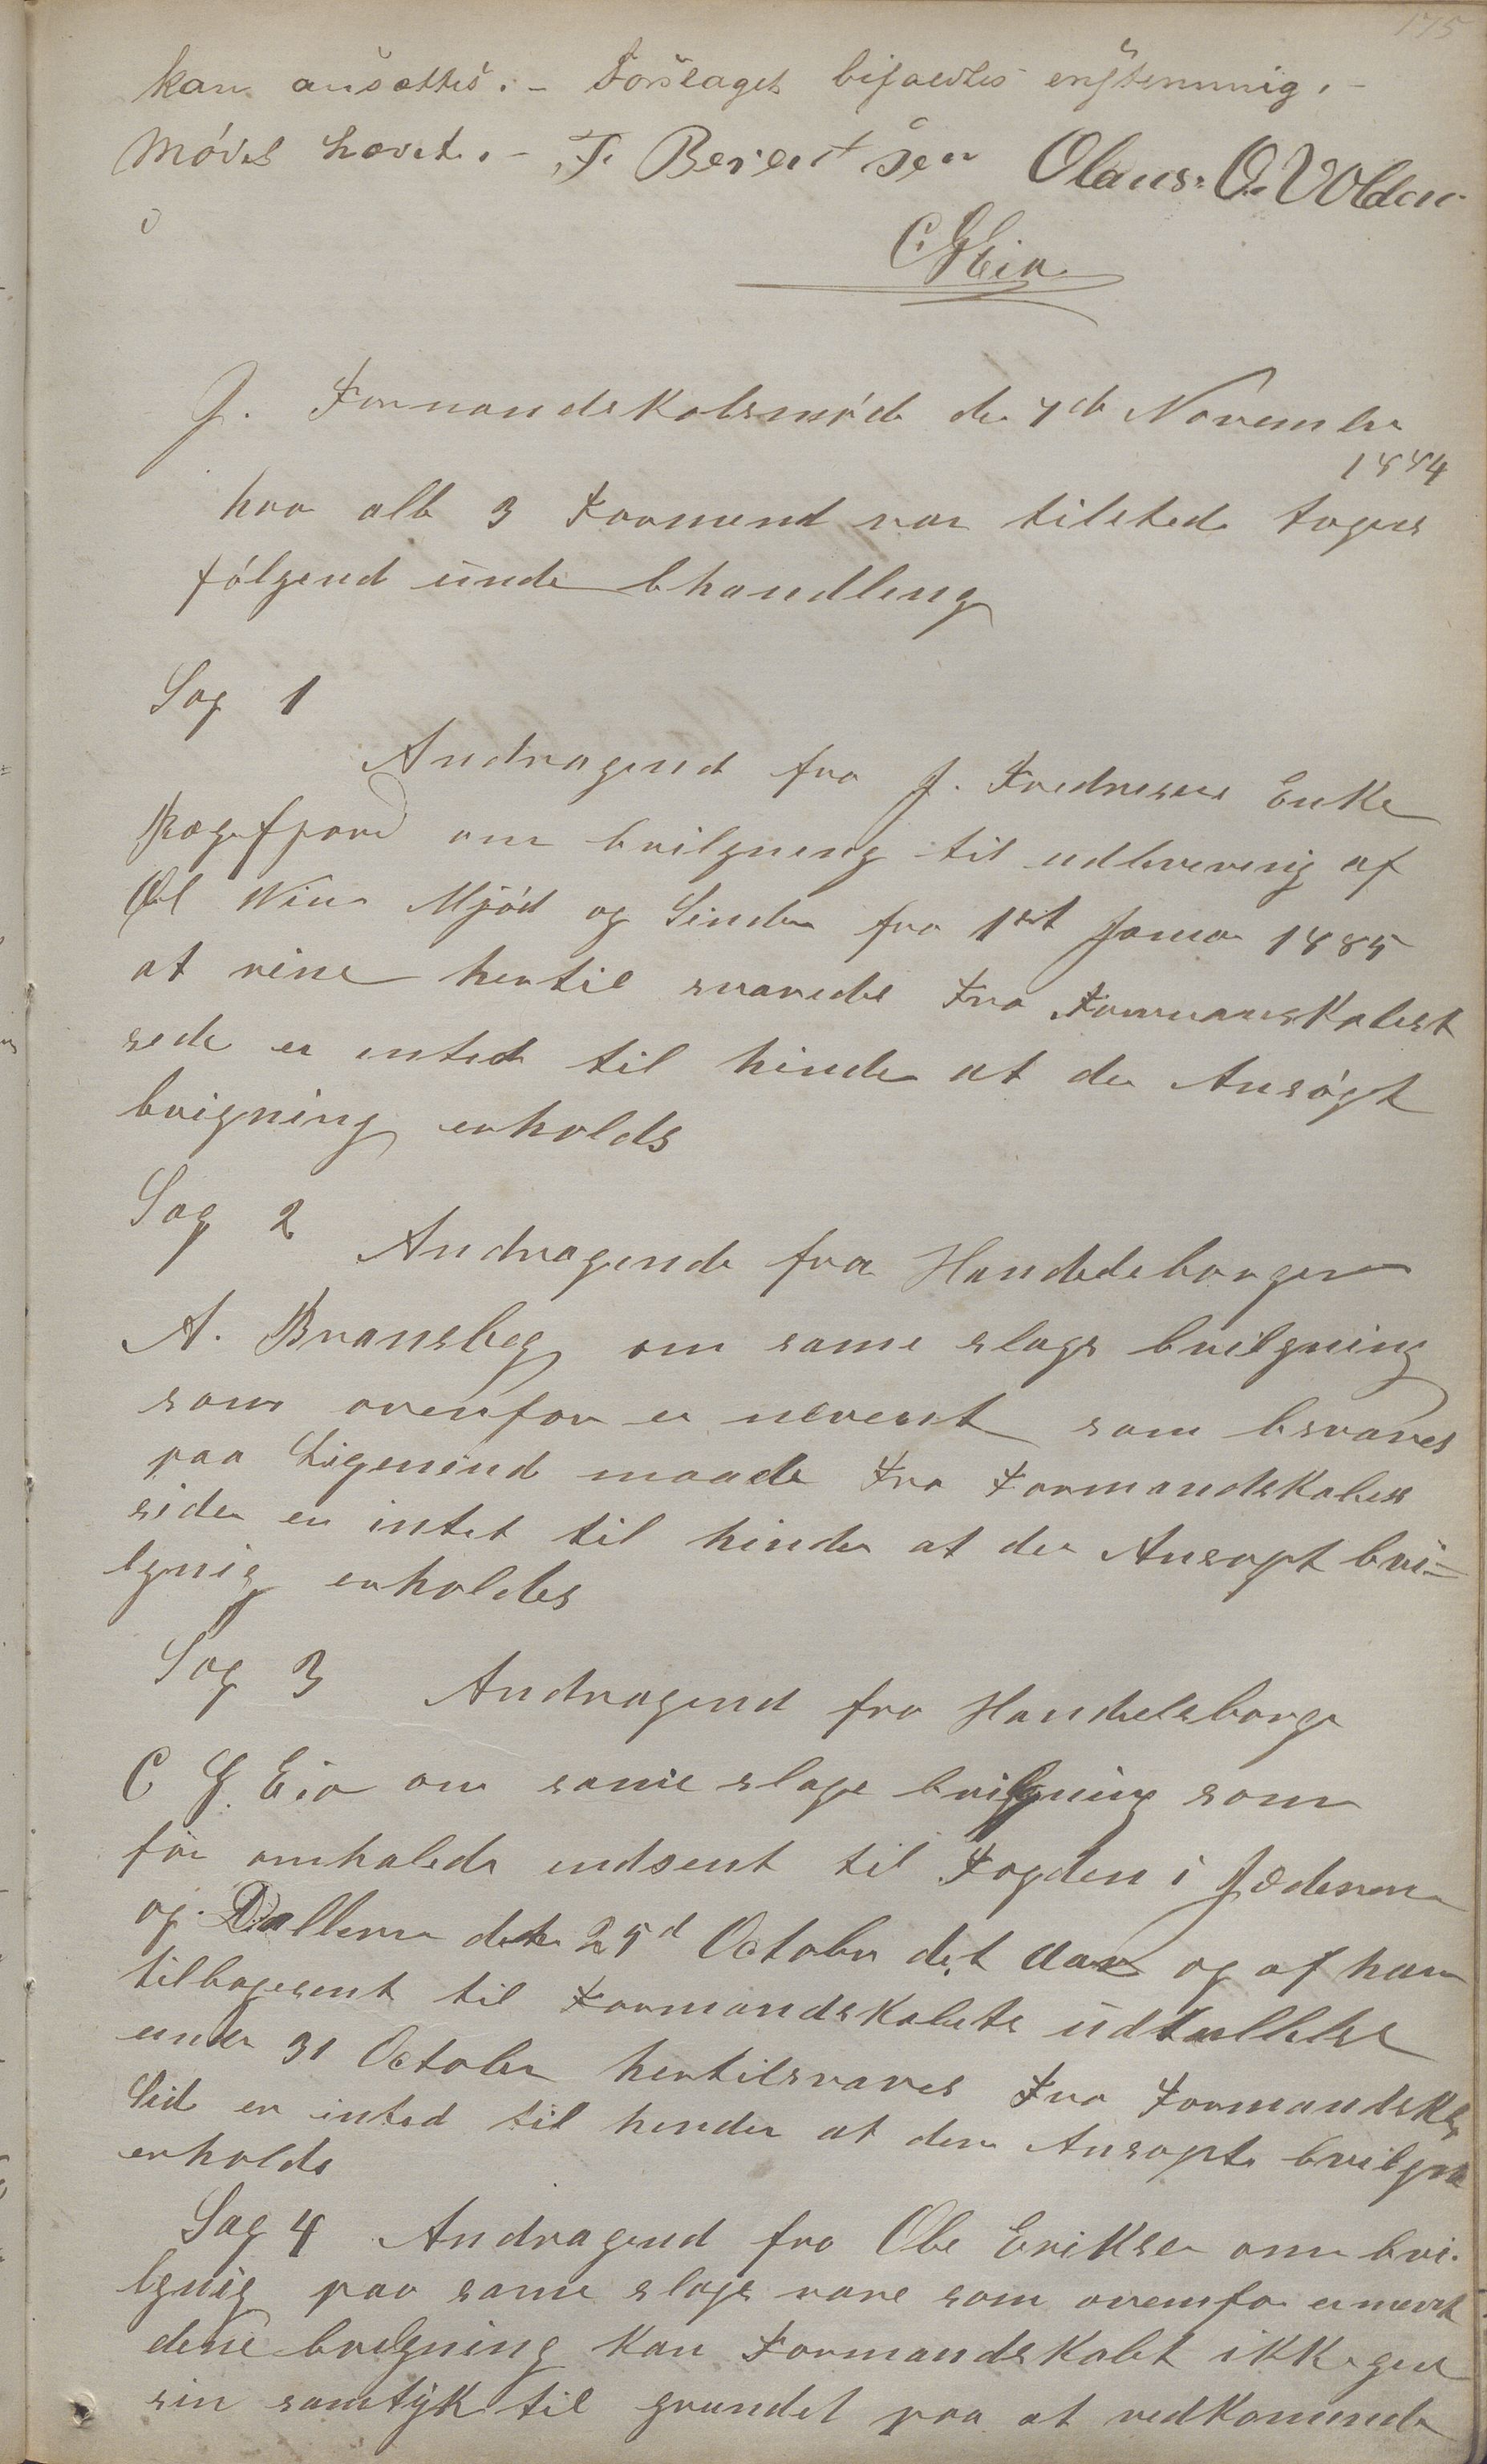 175
kan ansættes. - Forslaget bifaldtes enstemmig. -
Mödet hævet. - T. Berentsen Olaus. O. Volden
C G Eia
J. Formandskabsmöde de 7de November
1884
hvor alle 3 Formænd var tilstede toges
fölgend unde bhandling
Sag 1
Andragend fra J. Fredresens Enke
Rægefjord om bvilgning til udlevering af
Øel Win Mjöd og Sinder fra 1st Januar 1885
at vine hertil svaredes Fra Formanskabest
sede er inted til hinde at de Ansögt
bvigning erholds
Sag 2 Andragende fra Handelsborger
A. Bransbeg om same slags bvilgning
som ovenfor er nevent som bsvares
paa Ligenend maade Fra Formandskabes
side er intet til hinde at de Ansøgt bvi=
lgnig erholdes
Sag 3 Andragend fra Handelsborge
C G. Eia om same slags bvilgning som
för omhaled indsent til Fogden i Jæderen
og Dallerne den 25d October det aar og af ham
tilbagesent til Formandskabets udtallelse
under 31 October hertilsvares Fra Formandskbs
Side er inted til hinder at den Ansøgte bvilgn
erholds
Sag 4 Andragend fra Obe Eriksen om bvi-
lgnig paa same slags vare som ovenfor er nevnt
dene bvelgning kan Formandskabet ikke give
sin samtÿk til grundet paa at vedkomend